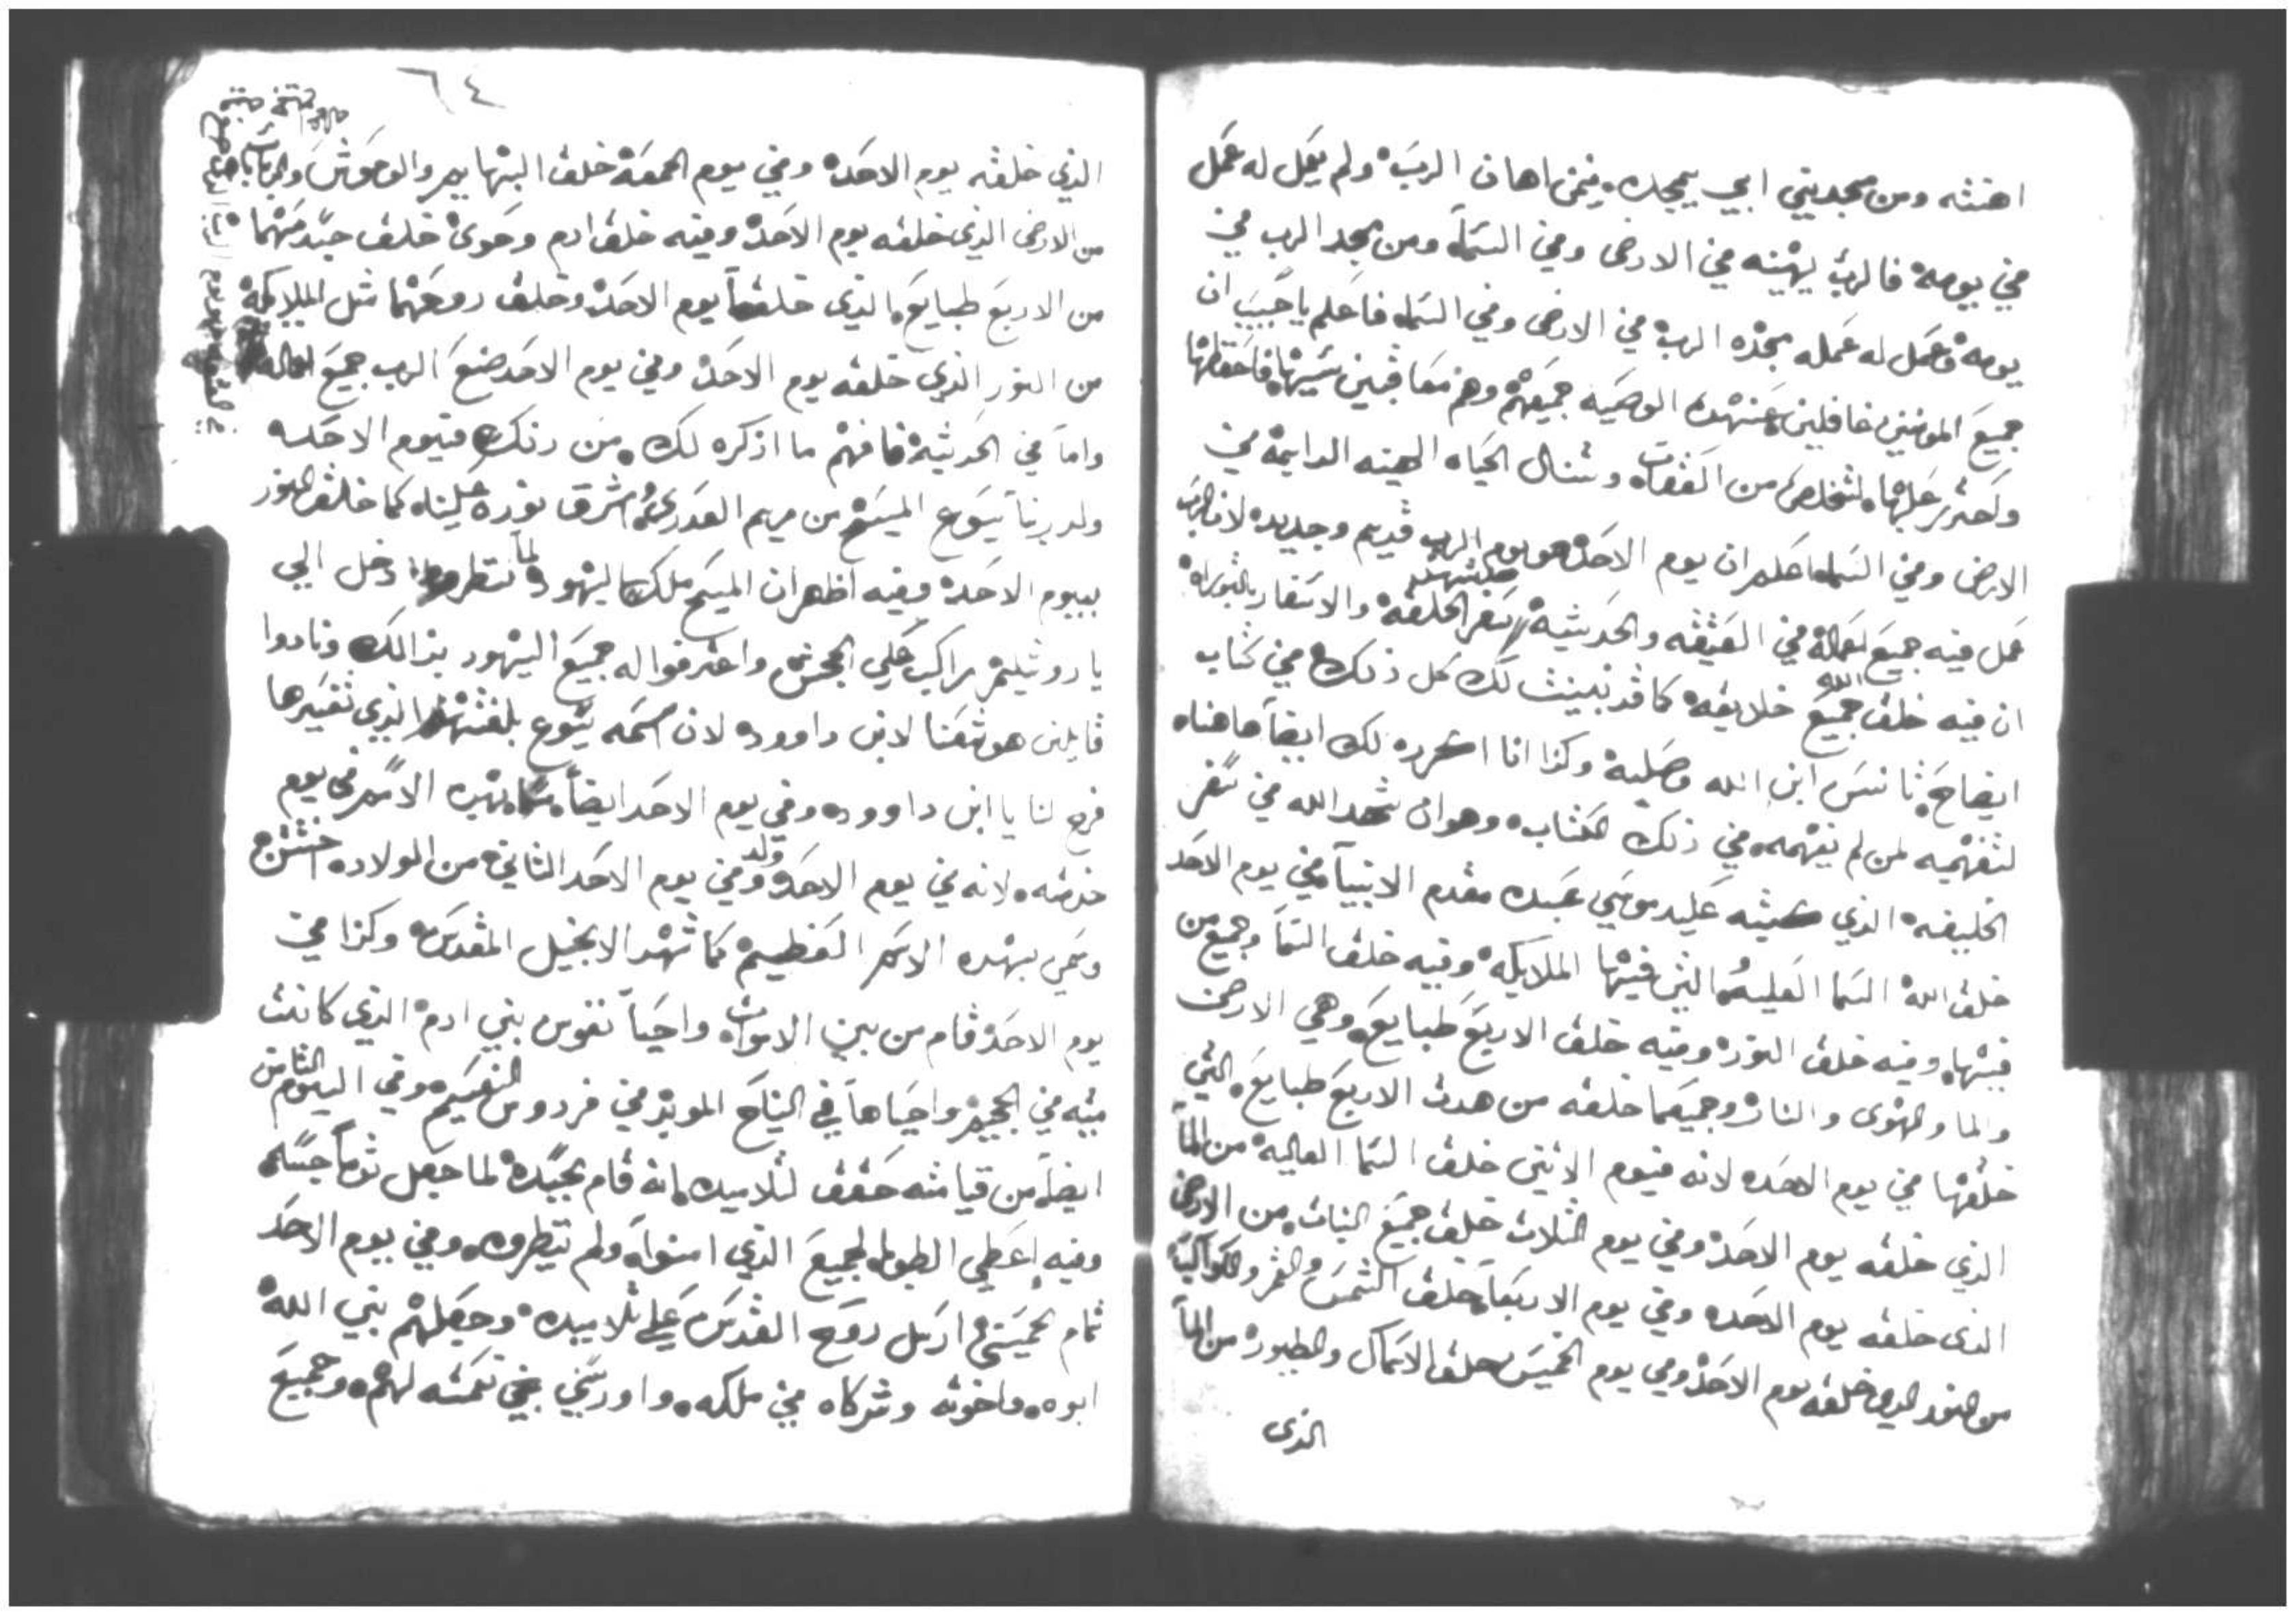 اهنته ومن مجديني ابي يمجده فمن اهان الرب ولم يعمل له عمل
في يومه فالرب يهينه في الارض وفي السما ومن مجد الرب في
يومه وعمل له عمله مجده الرب في الارض وفي السما فاعلم يا حبيب ان
جميع المومنين غافلين عن هده الوصيه جميعهم وهم معاقبين بسببها فاحفظها
واحترس عليها لتخلص من العقاب وتنال الحياه الهنيه الدايمة في
الارض وفي السما اعلم ان يوم الاحد هو يوم الرب قديم وجديد لان الرب
عمل فيه جميع اعماله في العتيقه والحديثة سفر الخلقة والاسفار بالتوراة
ان فيه خلق الله جميع خلايقه كما قد تبينت لك كل ذلك في كتاب
ايضاح تانس ابن الله وصلبه وكذا انا اشرده لك ايضا هاهناه
لتفهمه لمن لم يفهمه في ذلك الكتاب وهو ان شهد الله في سفر
الخليقه الذي كتبه علي يد موسي عبده مقدم الانبيا في يوم الاحد
خلق الله السما العليه التي فيها الملايكه وفيه خلق السما وجميع من
فيها وفيه خلق النور وفيه خلق الاربع طبايع وهي الارض
والما والهوى والنار وجميعما خلقه من هدت الاربع طبايع التي
خلقها في يوم الاحد لانه فيوم الاثنين خلق السما العاليه من الما
الذي خلقه يوم الاحد وفي يوم الثلاث خلق جميع النبات من الارض
الذى خلقه يوم الاحد وفي يوم الاربعا خلق الشمس والقمر والكواكب
من النور الذى خلقه يوم الاحد وفي يوم الخميس خلق الاسماك والطيور من الما
الذى
٦٤
الذي خلقه يوم الاحد وفي يوم الجمعة خلق البهايم والوحوش والدبابات
من الارض الذى خلقه يوم الاحد وفيه خلق ادم وحوى خلق جسدهما
من الاربع طبايع الذى خلقها يوم الاحد وخلق روحهما مثل الملايكه
من النور الذي خلقه يوم الاحد وفي يوم الاحد صنع الرب جميع اعماله
واما في الحديثة فافهم ما اذكره لك من ذلك فيوم الاحد
ولد ربنا يسوع المسيح من مريم العدرى واشرق نوره علينا كما خلق النور
بيوم الاحد وفيه اظهر ان المسيح ملك اليهود لما دخل الي
يا روشليم راكب علي الجحش واعترفوا له جميع اليهود بذالك ونادوا
قايلين هوشعنا لابن داوود لان اسمه يسوع بلغتهم الذي تفسيرها
فرج لنا يا ابن داوود وفي يوم الاحد ايضا بهده الاسم في يوم
ختنته لانه في يوم الاحد ولد وفي يوم الاحد الثاني من الولاده اختتن
وسمي بهده الاسم العظيم كما شهد الانجيل المقدس وكذا في
يوم الاحد قام من بين الاموات واحيا نفوس بني ادم الذي كانت
ميته في الجحيم واحياها في النياح الموبد في فردوس النعيم وفي اليوم الثامن
ايضا من قيامته حقق لتلاميده انه قام بجسده لما جعل توما جسه
وفيه اعطي الطوبا لجميع الذي امنوا ولم ينظروه وفي يوم الاحد
تمام الخمسين ارسل روح القدس علي تلاميده وجعلهم بني الله
ابوه واخوته وشركاه في ملكه واورسي في نعمته لهم وجميع